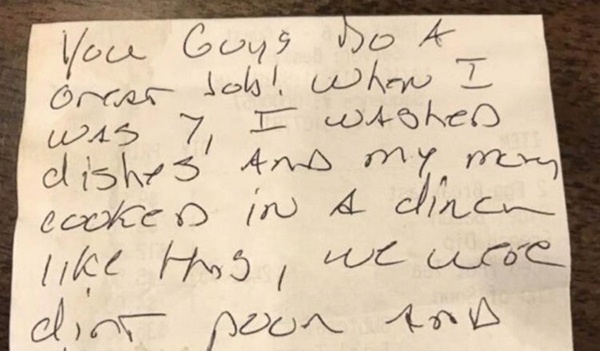 You Guys Do A
Great Job! When I
was 7, I washed
dishes And my mom
cooked in A diner
like this, we were
dirt poor And